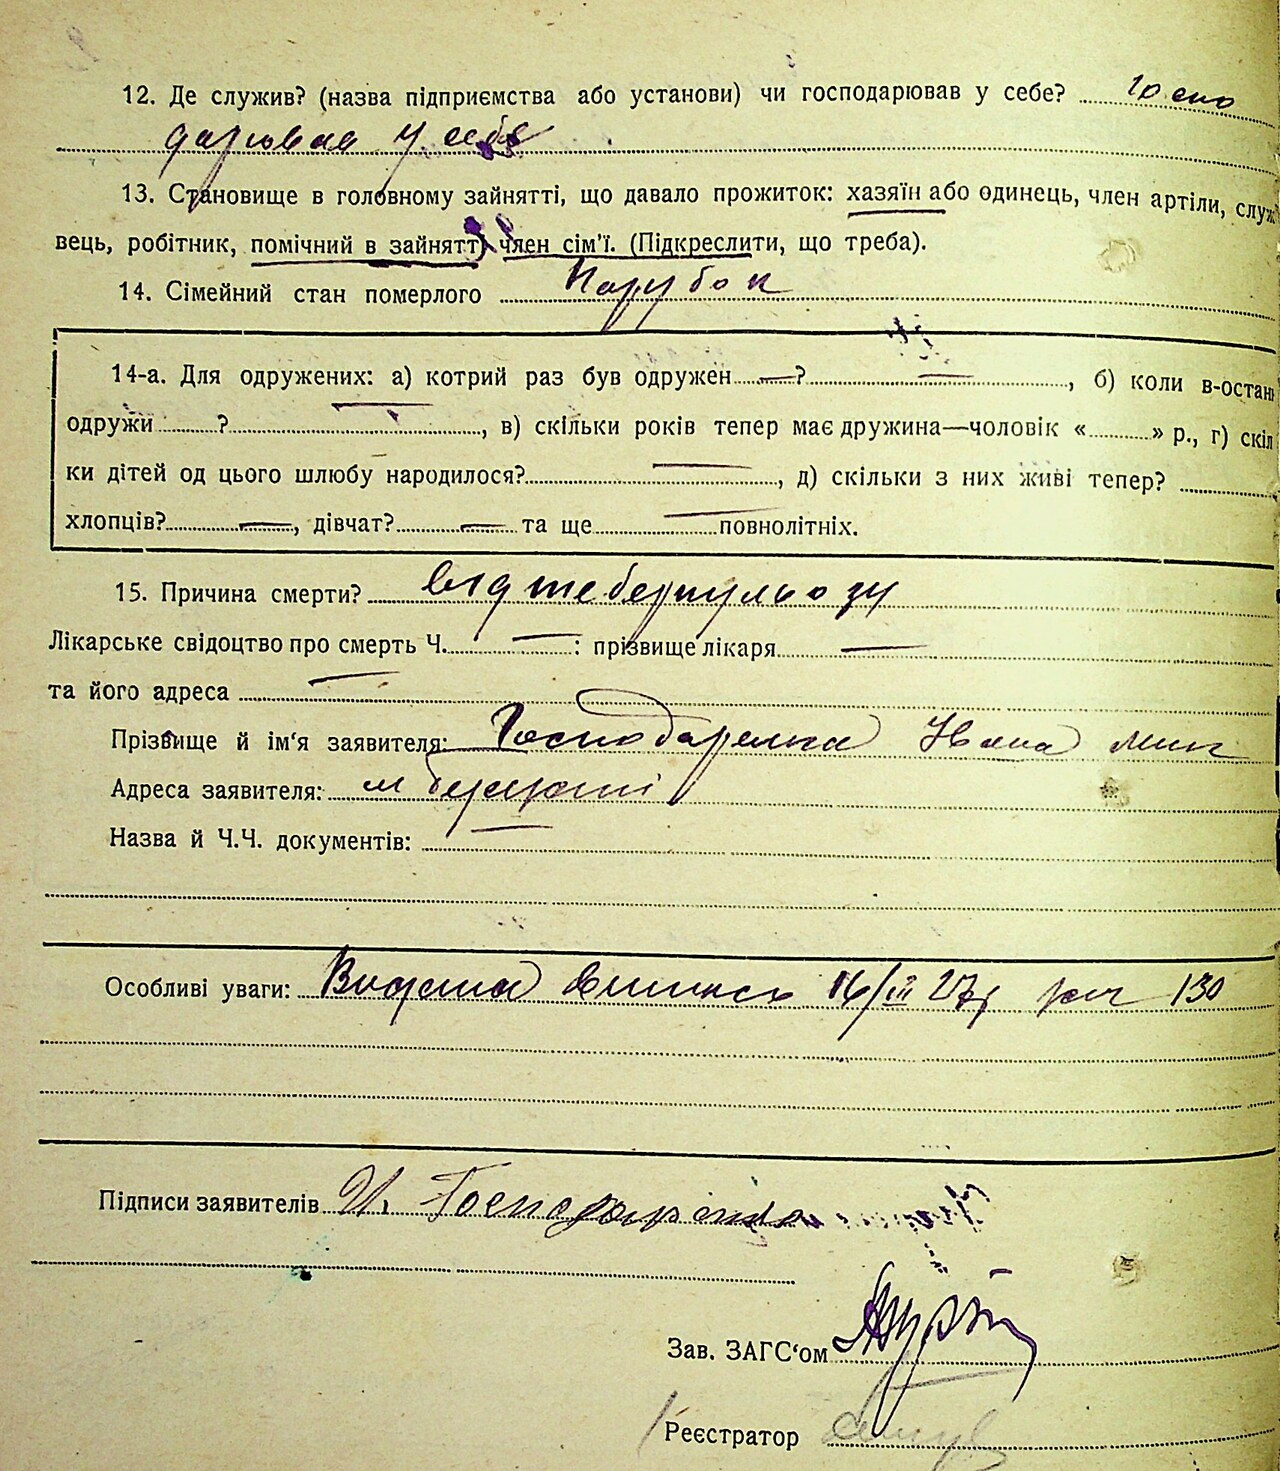 12. Де служив? (назва підприємства або установи) чи господарював у себе? Госпо
дарював у себе
13. Становище в головному зайнятті, що давало прожиток: хазяїн або одинець, член артіли, служ
вець, робітник, помічний в зайнятт член сім'ї. (Підкреслити, що треба).
14. Сімейний стан померлого Парубок
14-а. Для одружених: а) котрий раз був одружен — ? —, б) коли в-остан
одружи ? —, в) скільки років тепер має дружина—чоловік « » р., г) скіл
ки дітей од цього шлюбу народилося? —, д) скільки з них живі тепер?
хлопців? —, дівчат? — та ще — повнолітніх.
15. Причина смерти? від теберкульозу
Лікарське свідоцтво про смерть Ч. — : прізвище лікаря —
та його адреса —
Прізвище й ім'я заявителя: Господарелка Івана
Адреса заявителя: м
Назва й Ч.Ч. документів: —
Особливі уваги: Видана випись 16/III 27р 130
Підписи заявителів И.
Зав. ЗАГС'ом
Реєстратор